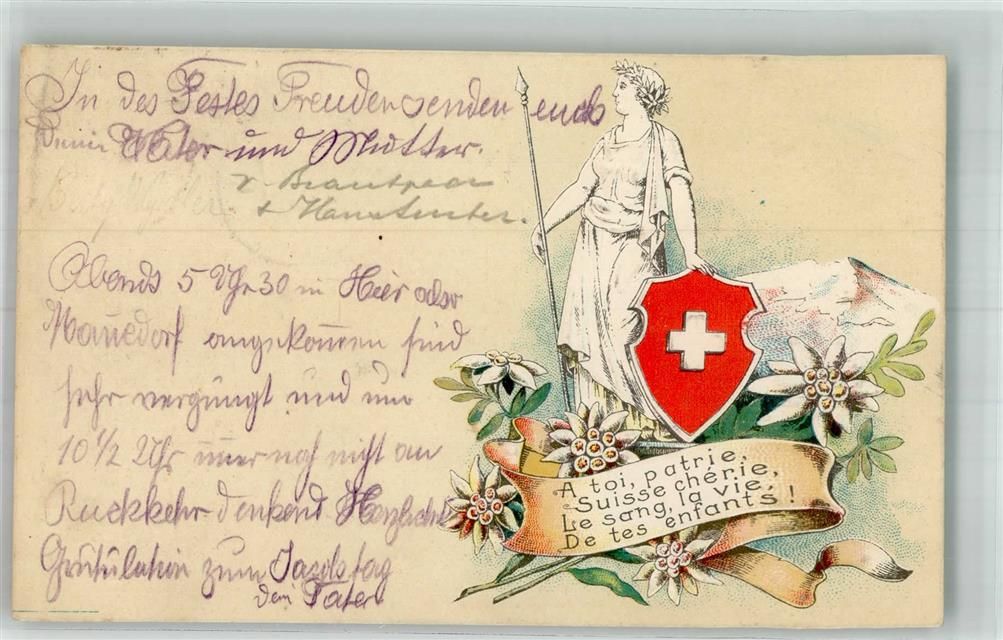 In des Festes Freuden senden euch
Vater und Mutter.
Abends 5 Uhr 30 in Hier oder
angekommen sind
sehr vergnügt und um
10 1/2 Uhr immer noch nicht an
Ruckkehr denkend Herzliche
Gratulation zum
dem Vater
A toi, patrie,
Suisse chérie,
Le sang, la vie,
De tes enfants!